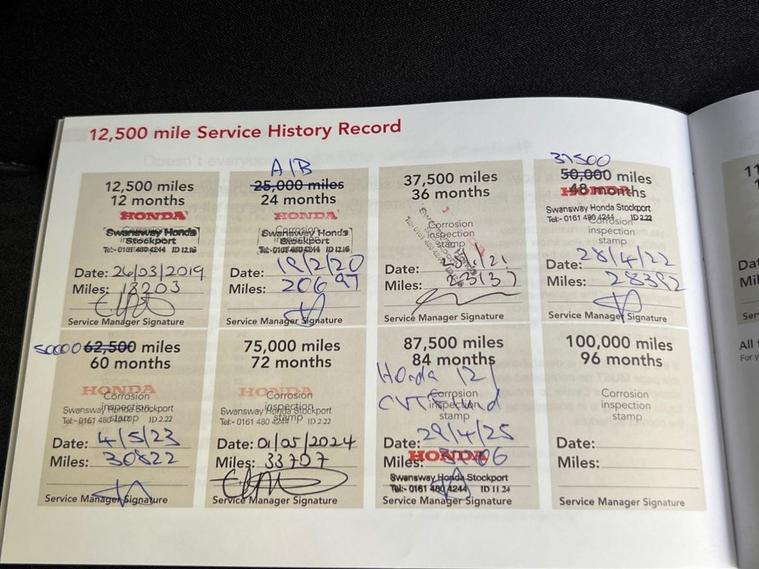 12,500 mile Service History Record
12,500 miles
12 months
HONDA
Corrosion
inspection
stamp
Swansway Honda
Stockport
Tel:- 0161 480 4244 ID 12.16
Date: 26/03/2019
Miles: 18203
Service Manager Signature
A/B
25,000 miles
24 months
HONDA
Corrosion
inspection
stamp
Swansway Honda
Stockport
Tel:- 0161 480 4244 ID 12.16
Date: 19/2/20
Miles: 20697
Service Manager Signature
37,500 miles
36 months
Corrosion
inspection
stamp
Date: /21
Miles: 23137
Service Manager Signature
37500
50,000 miles
48 months
HONDA
Swansway Honda Stockport
Tel:- 0161 480 4244 ID 2.22
Corrosion
inspection
stamp
Date: 28/4/22
Miles: 28392
Service Manager Signature
50000 62,500 miles
60 months
HONDA
Corrosion
inspection
stamp
Swansway Honda Stockport
Tel:- 0161 480 4244 ID 2.22
Date: 4/5/23
Miles: 30822
Service Manager Signature
75,000 miles
72 months
HONDA
Corrosion
inspection
stamp
Swansway Honda Stockport
Tel:- 0161 480 4244 ID 2.22
Date: 01/05/2024
Miles: 33707
Service Manager Signature
87,500 miles
84 months
Honda 12/
CVTF
Corrosion
inspection
stamp
Date: 29/4/25
Miles:
HONDA
Swansway Honda Stockport
Tel:- 0161 480 4244 ID 11.24
Service Manager Signature
100,000 miles
96 months
Corrosion
inspection
stamp
Date:
Miles:
Service Manager Signature
11
1
Dat
Mil
Ser
All
For y